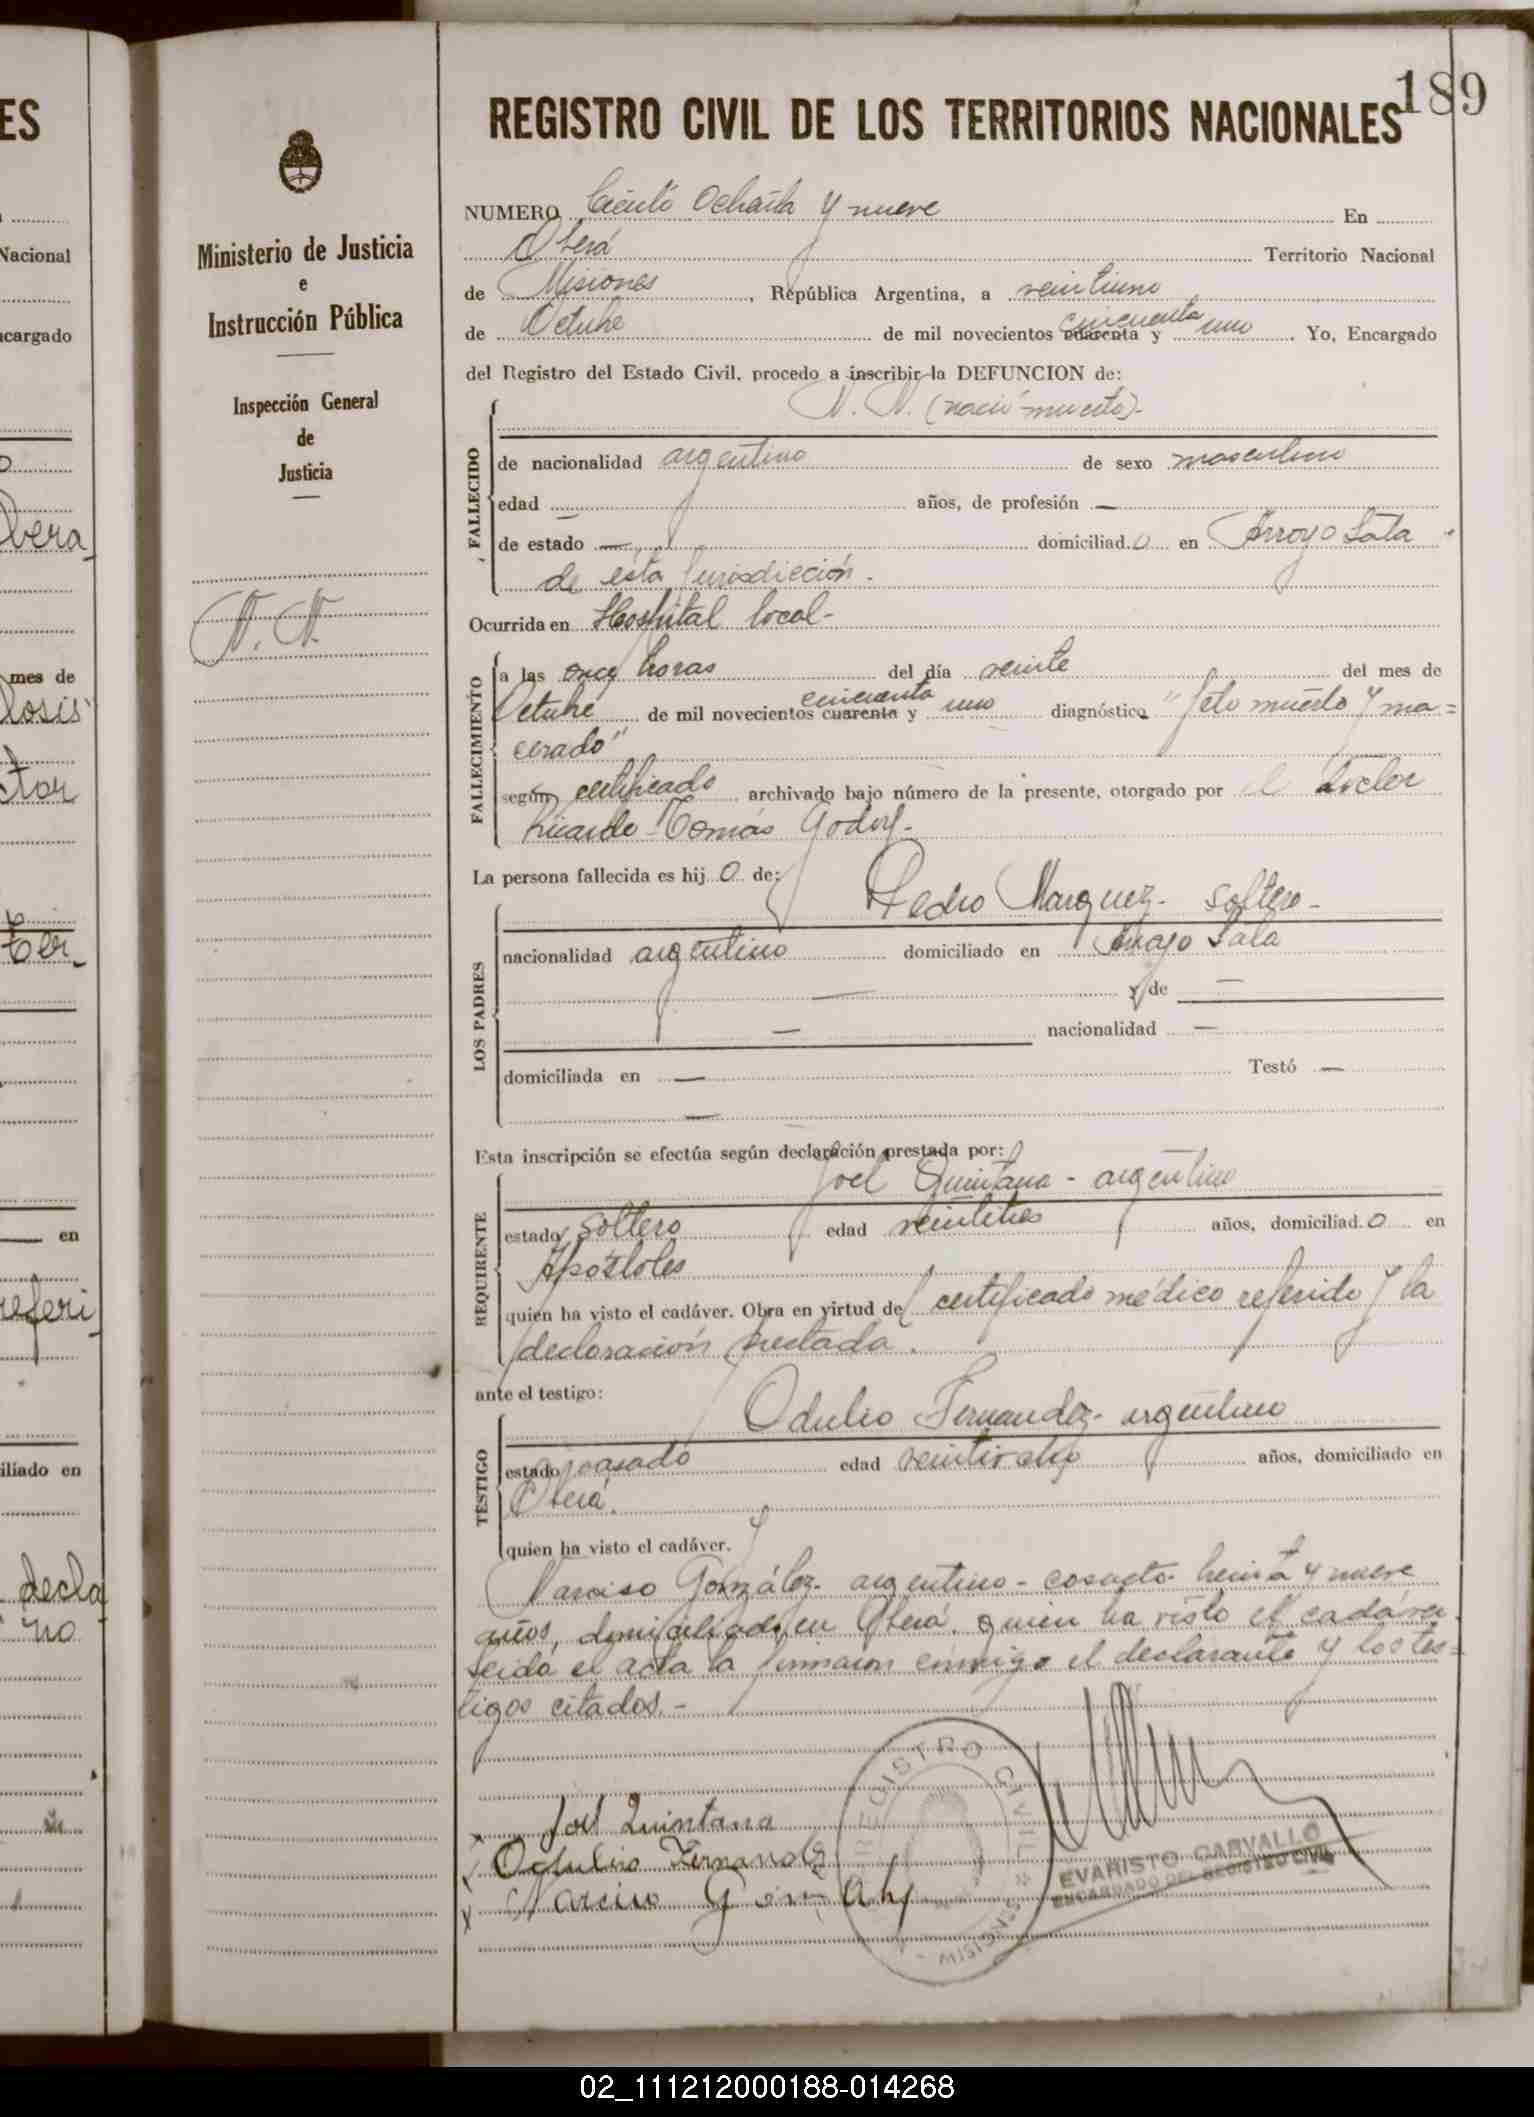 189
REGISTRO CIVIL DE LOS TERRITORIOS NACIONALES
Ministerio de Justicia
e
Instrucción Pública
Inspección General
de
Justicia
N. N.
NUMERO Ciento Ochenta y nueve En
Oberá Territorio Nacional
de Misiones, República Argentina, a veintiuno
de Octubre de mil novecientos cuarenta cincuenta y uno. Yo, Encargado
del Registro del Estado Civil, procedo a inscribir la DEFUNCION de:
N. N. (nació muerto)-
FALLECIDO
de nacionalidad argentino de sexo masculino
edad — años, de profesión —
de estado — domiciliad.o en Arroyo Lata
de esta Jurisdicción.
Ocurrida en Hospital local-
FALLECIMIENTO
a las once horas del día veinte del mes de
Octubre de mil novecientos cuarenta cincuenta y uno diagnóstico "feto muerto y ma=
cerado"
según certificado archivado bajo número de la presente, otorgado por el doctor
Ricardo Tomás Godoy-
La persona fallecida es hij.o. de:
LOS PADRES
Pedro Marquez- soltero-
nacionalidad argentino domiciliado en Arroyo Lata
— y de —
— nacionalidad —
domiciliada en — Testó —
—
Esta inscripción se efectúa según declaración prestada por:
REQUIRENTE
Joel Quintana - argentino
estado soltero edad veintitres años, domiciliad.o en
Apóstoles
quien ha visto el cadáver. Obra en virtud del certificado médico referido y la
declaración prestada.
ante el testigo:
TESTIGO
Odulio Fernandez- argentino
estado casado edad veintiocho años, domiciliado en
Oberá.
quien ha visto el cadáver. y
Narciso González- argentino - casado- treinta y nueve
años, domiciliado en Oberá. quien ha visto el cadáver.
Leida el acta la firmaron conmigo el declarante y los tes=
tigos citados.-
Joel Quintana
Odulio Fernandez
Narciso Gonzalez
REGISTRO CIVIL
MISIONES
EVARISTO CARVALLO
ENCARGADO DEL REGISTRO CIVIL
02_111212000188-014268